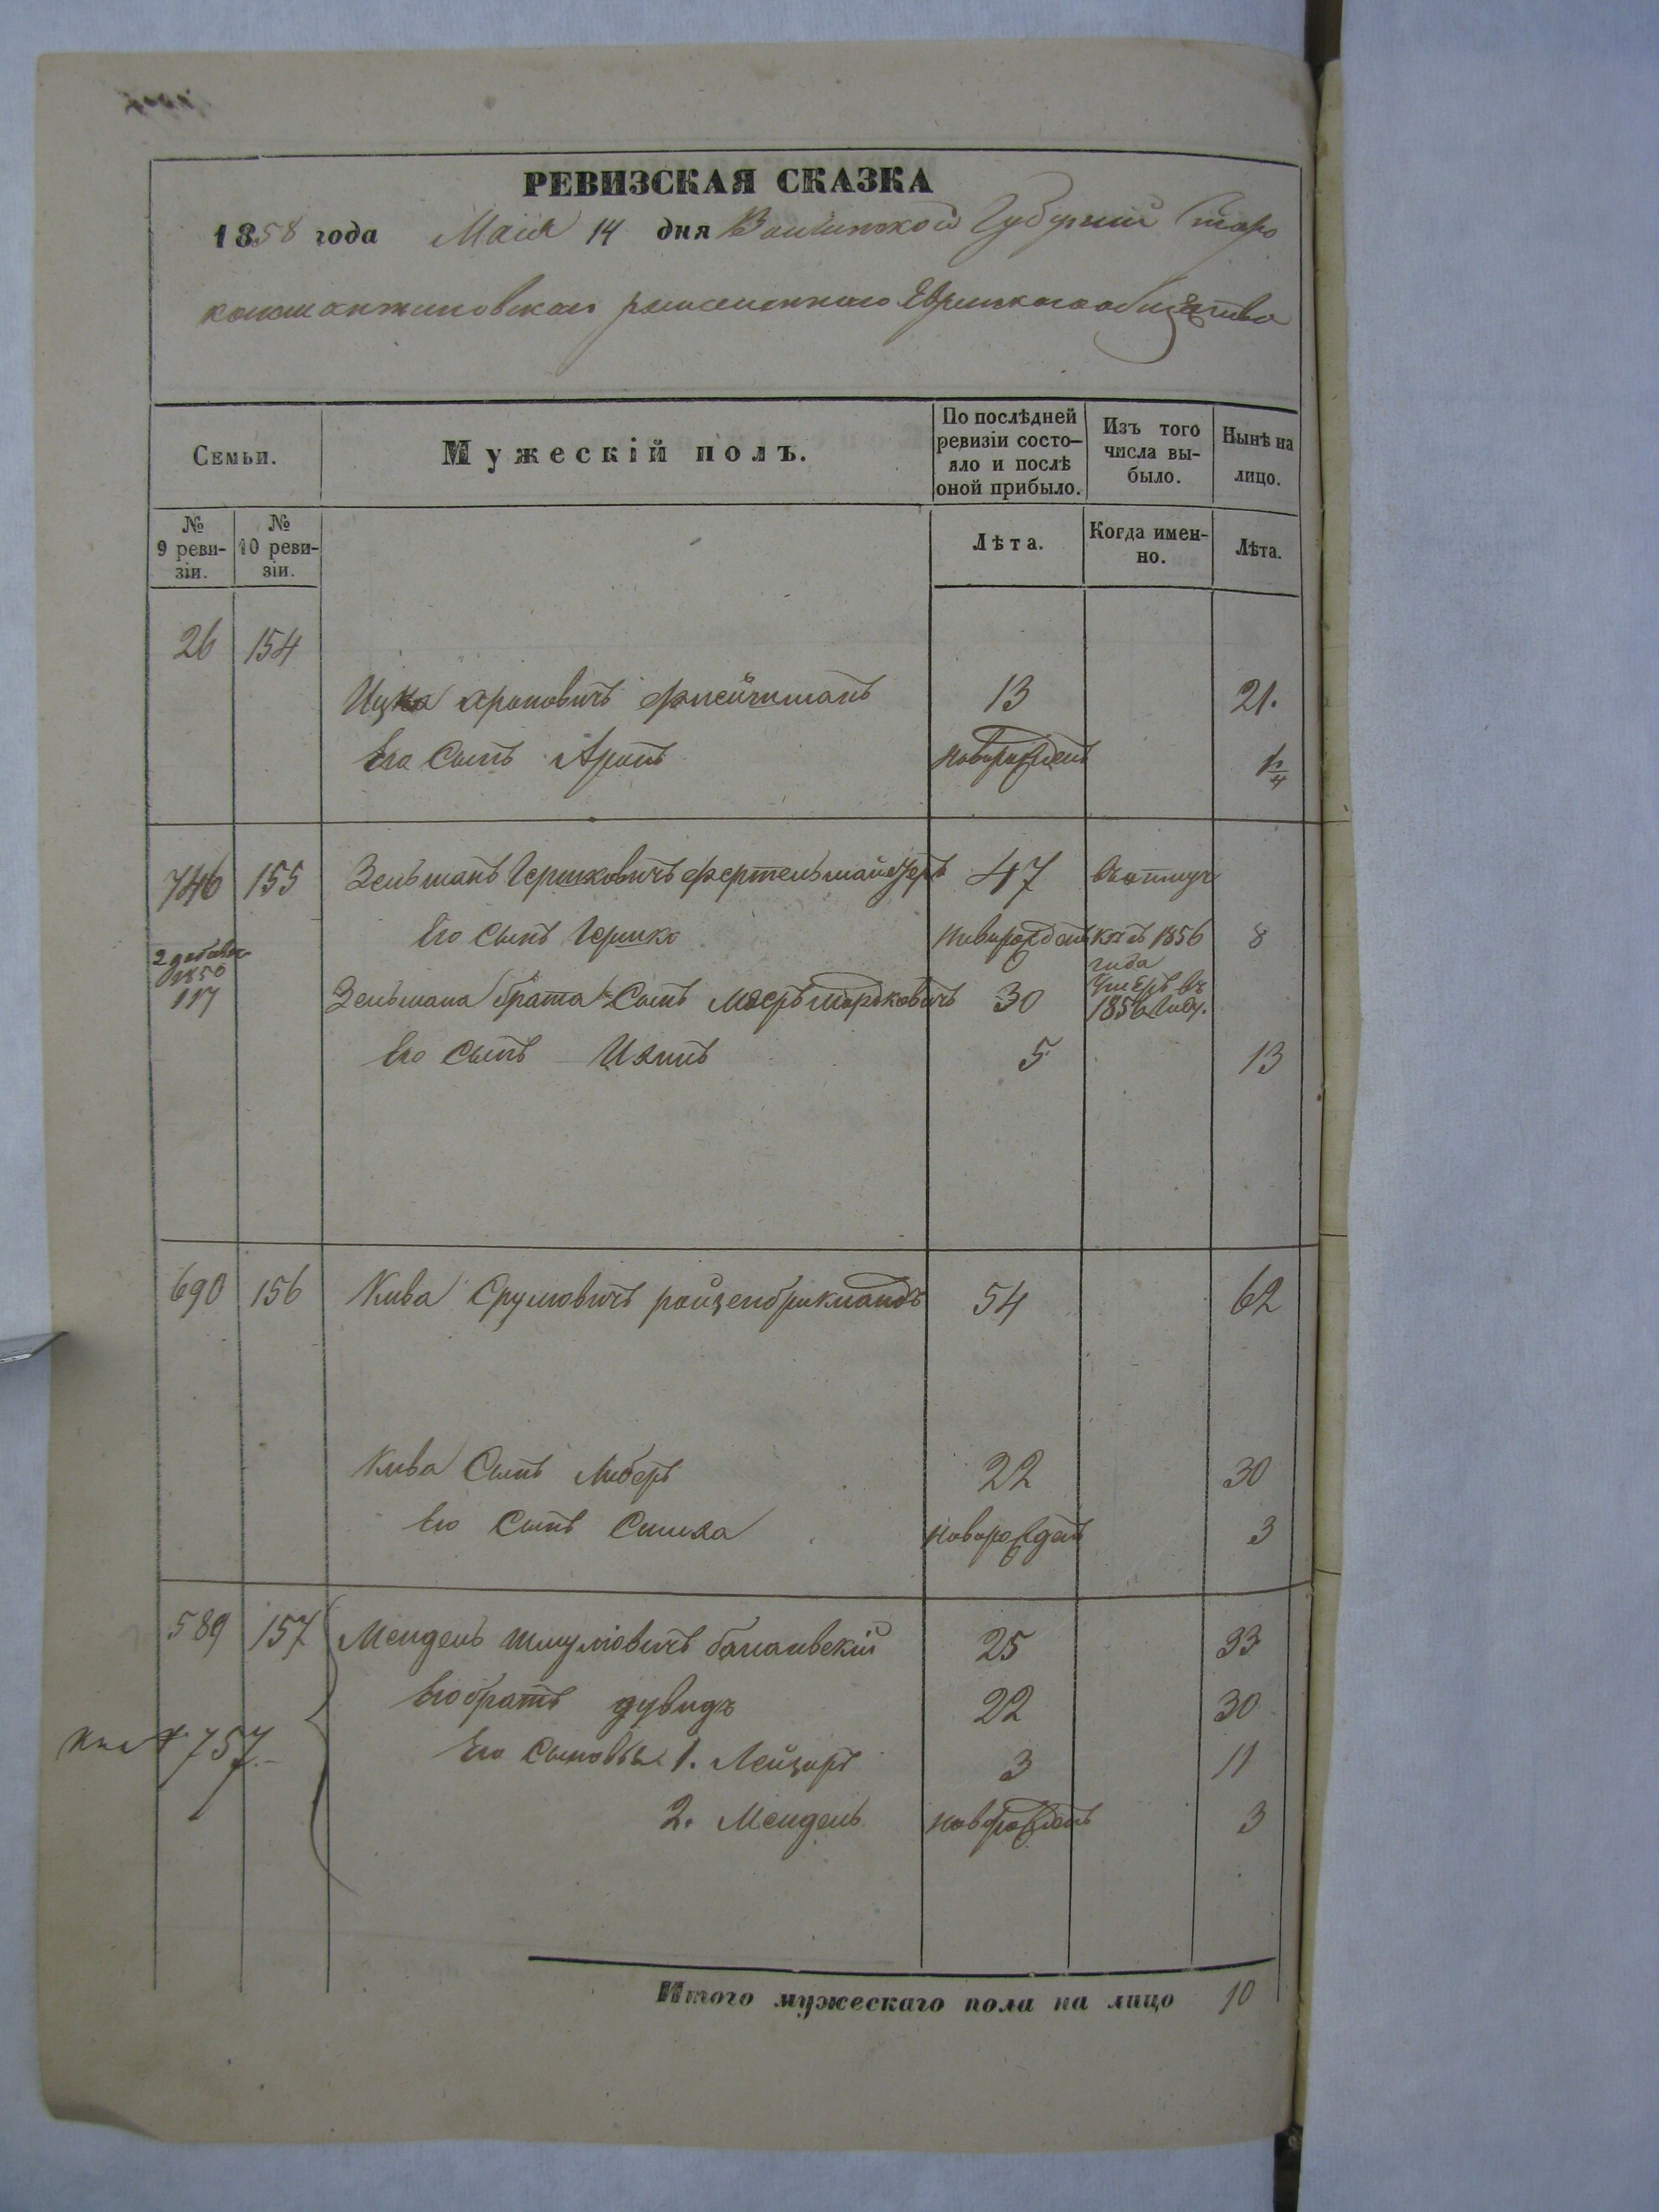 РЕВИЗСКАЯ СКАЗКА
1858 года Маия 14 дня Волынской Губернии Старо
константиновскаго ремесленнаго Еврейскаго общества
Семьи.
Мужескій полъ.
По послѣдней ревизіи состо-
яло и послѣ
оной прибыло.
Изъ того
числа вы-
было.
Нынѣ на
лицо.
№
9 реви-
зіи.
№
10 реви-
зіи.
Лѣта.
Когда имен-
но.
Лѣта.
26 154
Ицка Ароновичъ Флейшманъ 13 21.
Его Сынъ Аронъ новорожденъ
746 155 Зельманъ Гершковичъ Фертельмайстеръ 47
Его Сынъ Гершко новорожденъ 1856 8
года
1850
117
Зельмана брата Сынъ Моеръ Морьковичъ 30 Умеръ въ
1856 Году.
Его Сынъ 5 13
690 156 Кива Срулювичъ 54 62
Кива Сынъ Либеръ 22 30
Его Сынъ Симха новорожденъ 3
589 157 Мендель Шмулювичъ 25 33
Его братъ Дувидъ 22 30
757
Его Сыновья 1. Лейзоръ 3 11
2. Мендель новорожденъ 3
Итого мужескаго пола на лицо 10